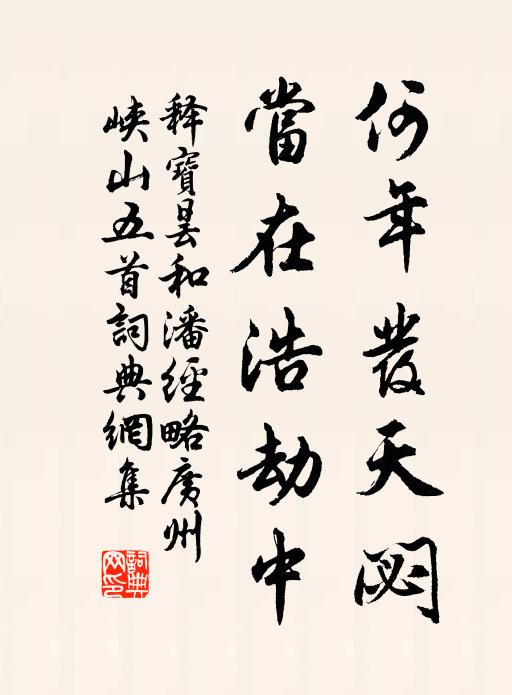 何年發天閟
當在浩劫中
释寶曇和潘經略廣州
峽山五首詞典網集
詞典
网印